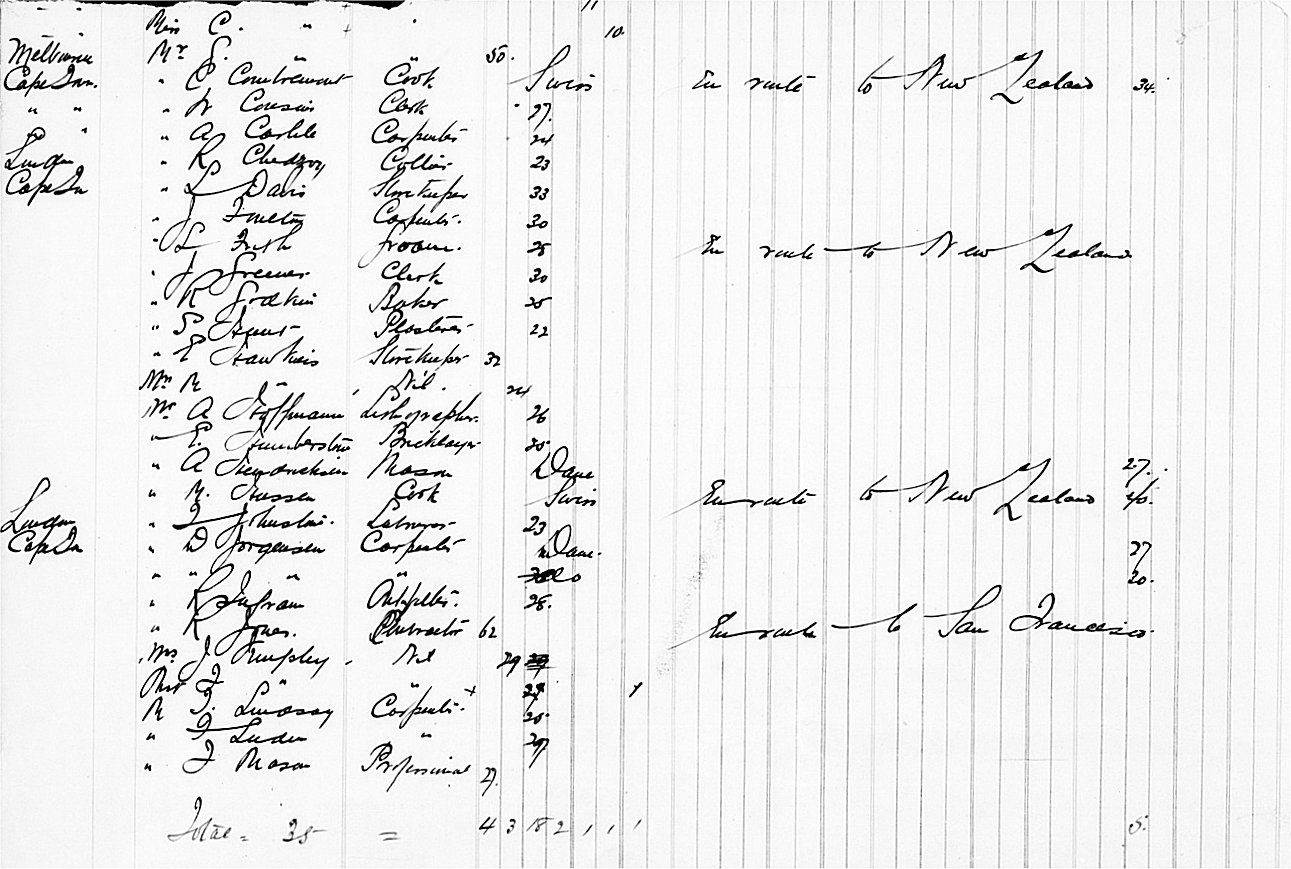 "
Miss C. " "
10.
Melbourne Mr S. " " 50.
Cape Tn. " C Cook Swiss En route to New Zealand 34.
" " " W Cousins Clerk 27.
" " A Carlile Carpenter 24
London " R Chedzoy Collier 23
Cape Tn " L Davis Storekeeper 33
" J Carpenter. 30
" L Frith Groom. 28 En route to New Zealand
" J Greener Clerk 30
" R Godkin Baker 25
" P Hunt Plasterer 22
" E Hawkins Storekeeper 32
Mrs M " Nil. 24
Mr A Hoffmann Lithographer. 26
" E. Humberstone Bricklayer 35
" A Mason Dane 27.
" M. Cook Swiss En route to New Zealand 40.
London " J Johnston. Labourer 23
Cape Tn " D Jorgensen Carpenter Dane. 27
" " " " do 20.
" R Ingram 28.
" R Jones. Contractor 62 En route to San Francisco
Mrs J Nil 29
" 1
Mr T. Lindsay Carpenter + 25
" J " 29
" J Mason Professional 27.
Total = 35 = 4 3 18 2 1 1 1 5.